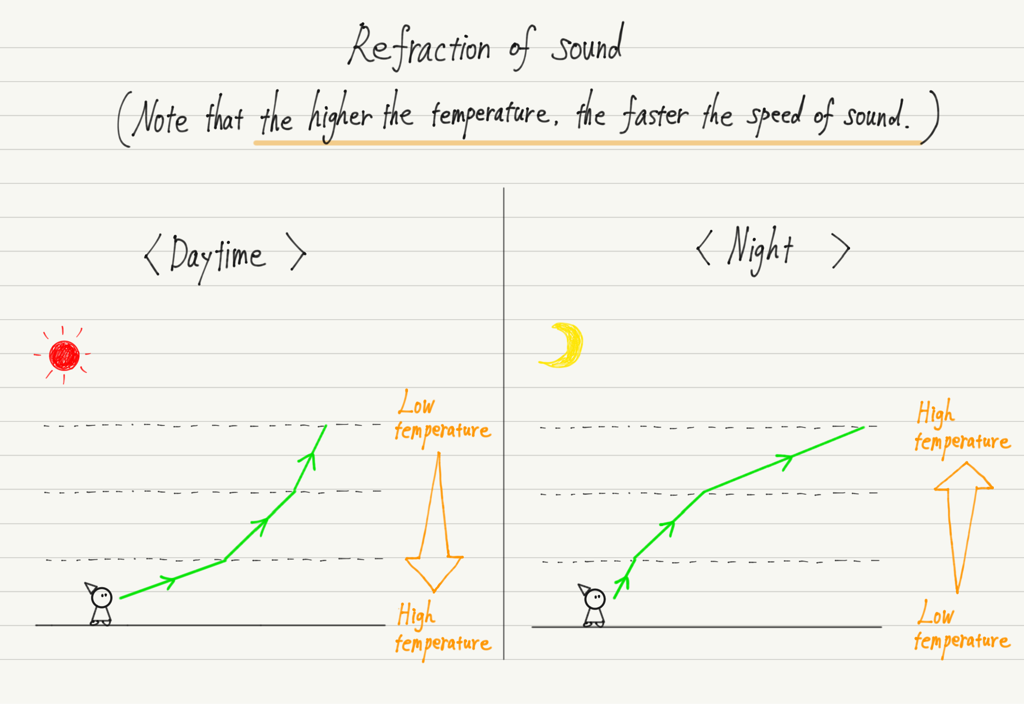 Refraction of sound
(Note that the higher the temperature, the faster the speed of sound.)
〈Daytime〉
Low
temperature
High
temperature
〈Night〉
High
temperature
Low
temperature